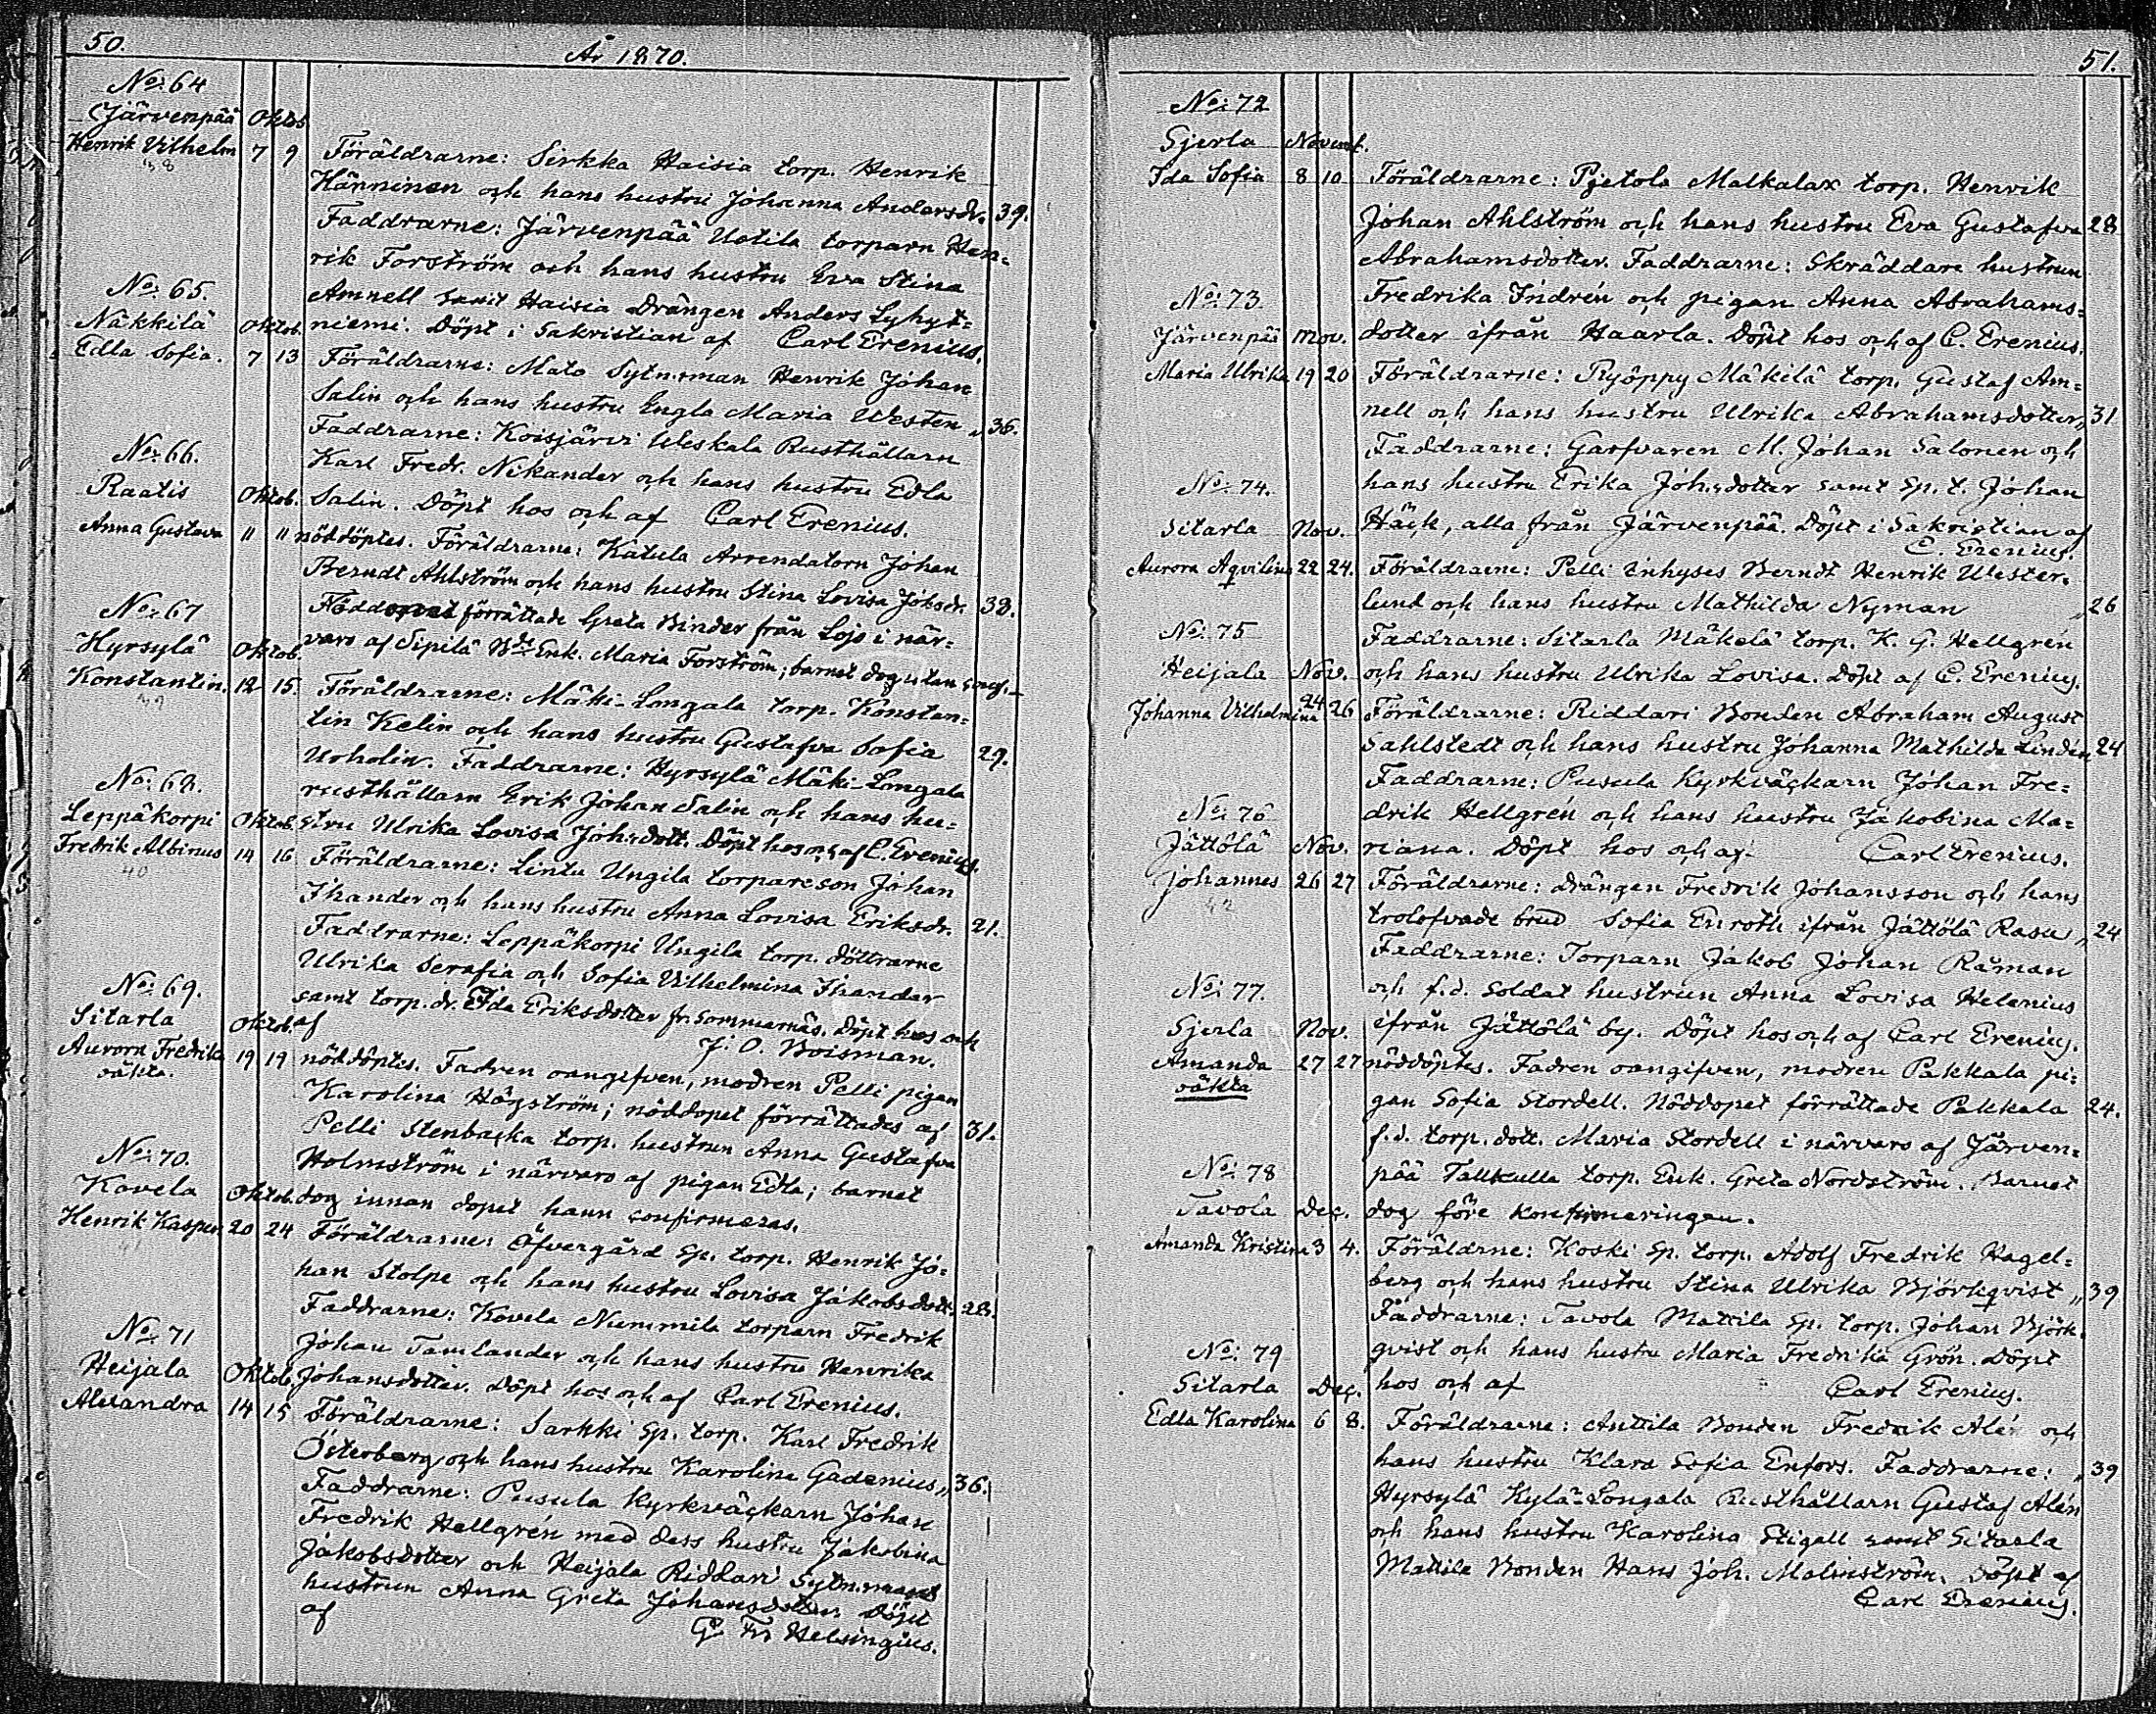 50.
År 1870.
No: 64
Järvenpää Oktob.
Henrik Vilhelm 7 9 Föräldrarne: Sirkka Haisia torp. Henrik
38
Hänninen och hans hustru Johanna Andersdr. 39.
Faddrarne: Järvenpää Uotila torparn Hen=
rik Forström och hans hustru Eva Stina
No: 65.
Amnell samt Haisia Drängen Anders Lyhyt=
Näkkilä Oktob. niemi. Döpt i Sakristian af Carl Erenius.
Edla Sofia. 7 13 Föräldrarne: Mato Sytn:man Henrik Johan
Salin och hans hustru Engla Maria Westen „ 36.
Faddrarne: Koisjärvi Uleskala Rusthållarn
No: 66.
Karl Fredr. Nikander och hans hustru Edla
Raatis Oktob. Salin. Döpt hos och af Carl Erenius.
Anna Gustava 11 11 nöddöptes. Föräldrarne: Katula Arrendatorn Johan
Berndt Ahlström och hans hustru Stina Lovisa Johsdr. 38.
No: 67
Nöddopet förrättade Greta Binder från Lojo i när=
Hyrsylä Oktob. varo af Sipilä Bde Enk. Maria Forström; barnet dog utan conf.
Konstantin. 12 15. Föräldrarne: Mäki-Longala torp. Konstan=
39
tin Kelin och hans hustru Gustafva Sofia 29.
Urholin. Faddrarne: Hyrsylä Mäki-Longala
No: 68.
rusthållarn Erik Johan Salin och hans hu=
Leppäkorpi Oktob. stru Ulrika Lovisa Joh:dott. Döpt hos och af C. Erenius.
Fredrik Albinus 14 16 Föräldrarne: Lintu Ungila torpareson Johan
40
Ihander och hans hustru Anna Lovisa Eriksdr. 21.
Faddrarne: Leppäkorpi Ungila torp. döttrarne
Ulrika Serafia och Sofia Vilhelmina Ihander
No: 69.
samt torp. dr. Ida Eriksdotter fr. Sommarnäs. Döpt hos och
Sitarla Oktob. af J. O. Boisman.
Aurora Fredrika 19 19 nöddöptes. Fadren oangifven, modren Pelli pigan
oäkta.
Karolina Högström; nöddopet förrättades af 31.
Pelli Stenbacka torp. hustrun Anna Gustafva
No: 70.
Holmström i närvaro af pigan Edla; barnet
Kovela Oktob. dog innan dopet hann confirmeras.
Henrik Kasper 20 24 Föräldrarne: Öfvergård Sp. torp. Henrik Jo=
41
han Stolpe och hans hustru Lovisa Jakobsdott. 28.
Faddrarne: Kovela Nummila torparn Fredrik
No: 71
Johan Tamlander och hans hustru Henrika
Heijala Oktob. Johansdotter. Döpt hos och af Carl Erenius.
Alexandra 14 15 Föräldrarne: Sarkki Sp. torp. Karl Fredrik
Österberg och hans hustru Karolina Gadenius „ 36.
Faddrarne: Pusula Kyrkväckarn Johan
Fredrik Hellgrén med dess hustru Jakobina
Jakobsdotter och Heijala Riddari Sytn:mans
hustrun Anna Greta Johansdotter. Döpt
af G. Fr. Helsingius.
51.
No: 72
Gjerla Novemb.
Ida Sofia 8 10 Föräldrarne: Pjetola Malkalax torp. Henrik
Johan Ahlström och hans hustru Eva Gustafva 28
Abrahamsdotter. Faddrarne: Skräddare hustrun
No: 73
Fredrika Indrén och pigan Anna Abrahams=
Järvenpää Nov. dotter ifrån Haarla. Döpt hos och af C. Erenius.
Maria Ulrika 19 20 Föräldrarne: Ryöppy Mäkilä torp. Gustaf Am=
nell och hans hustru Ulrika Abrahamsdotter „ 31
Faddrarne: Garfvaren M. Johan Salonen och
No: 74.
hans hustru Erika Joh:dotter samt Sp. t. Johan
Sitarla Nov. Häck, alla från Järvenpää. Döpt i Sakristian af
C. Erenius.
Aurora Aqvilina 22 24. Föräldrarne: Pelli Inhyses Berndt Henrik Wester=
lund och hans hustru Mathilda Nyman „ 26
No: 75
Faddrarne: Sitarla Mäkelä torp. K. G. Hellgrén
Heijala Nov. och hans hustru Ulrika Lovisa. Döpt af C. Erenius.
Johanna Vilhelmina 24 26 Föräldrarne: Riddari Bonden Abraham August
Sahlstedt och hans hustru Johanna Mathilda Lindén 24
Faddrarne: Pusula Kyrkväckarn Johan Fre=
No: 76
drik Hellgrén och hans hustru Jakobina Ma=
Jättölä Nov. riana. Döpt hos och af Carl Erenius.
Johannes 26 27 Föräldrarne: Drängen Fredrik Johansson och hans
42
trolofvade brud Sofia Enroth ifrån Jättölä Rasu „ 24
Faddrarne: Torparn Jakob Johan Råman
No: 77.
och f.d. Soldat hustrun Anna Lovisa Helenius
Gjerla Nov. ifrån Jättölä by. Döpt hos och af Carl Erenius.
Amanda 27 27 nöddöptes. Fadren oangifven, modren Pakkala pi=
oäkta
gan Sofia Stordell. Nöddopet förrättade Pakkala 24.
f.d. torp. dott. Maria Stordell i närvaro af Järven=
No: 78
pää Tallkulla torp. Enk. Greta Nordström. Barnet
Tavola Dec. dog före konfirmeringen.
Amanda Kristina 3 4. Föräldrne: Koski Sp. torp. Adolf Fredrik Hagel=
berg och hans hustru Stina Ulrika Björkqvist „ 39
Faddrarne: Tavola Mattila Sp. torp. Johan Björk=
No: 79
qvist och hans hustru Maria Fredrika Grön. Döpt
Sitarla Dec. hos och af Carl Erenius.
Edla Karolina 6 8. Föräldrarne: Anttila Bonden Fredrik Alén och
hans hustru Klara Sofia Enfors. Faddrarne: „ 39
Hyrsylä Kylä-Longala Rusthållarn Gustaf Alén
och hans hustru Karolina Stigell samt Sitarla
Mattila Bonden Hans Joh. Malmström. Döpt af
Carl Erenius.